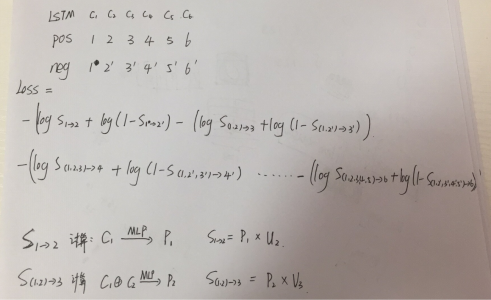 LSTM C₁ C₂ C₃ C₄ C₅ C₆
pos 1 2 3 4 5 6
neg 1 2' 3' 4' 5' 6'
Loss =
- (log S₁→₂ + log (1-S₁→₂') - (log S₍₁,₂₎→₃ + log (1 - S₍₁,₂'₎→₃'))
-(log S₍₁,₂,₃₎→₄ + log (1-S₍₁,₂',₃'₎→₄') ...... - (log S₍₁,₂,₃,₄,₅₎→₆ + log(1-
S₁→₂ 计算: C₁ MLP→ P₁ S₁→₂ = P₁ × U₂
S₍₁,₂₎→₃ 计算 C₁⊕C₂ MLP→ P₂ S₍₁,₂₎→₃ = P₂ × V₃